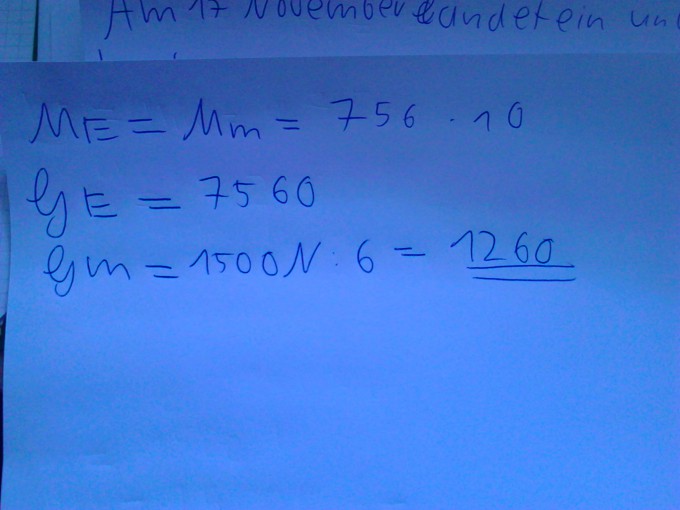 Am 17 November landet ein un
ME = Mm = 756 · 10
GE = 7560
Gm = 1500N : 6 = 1260